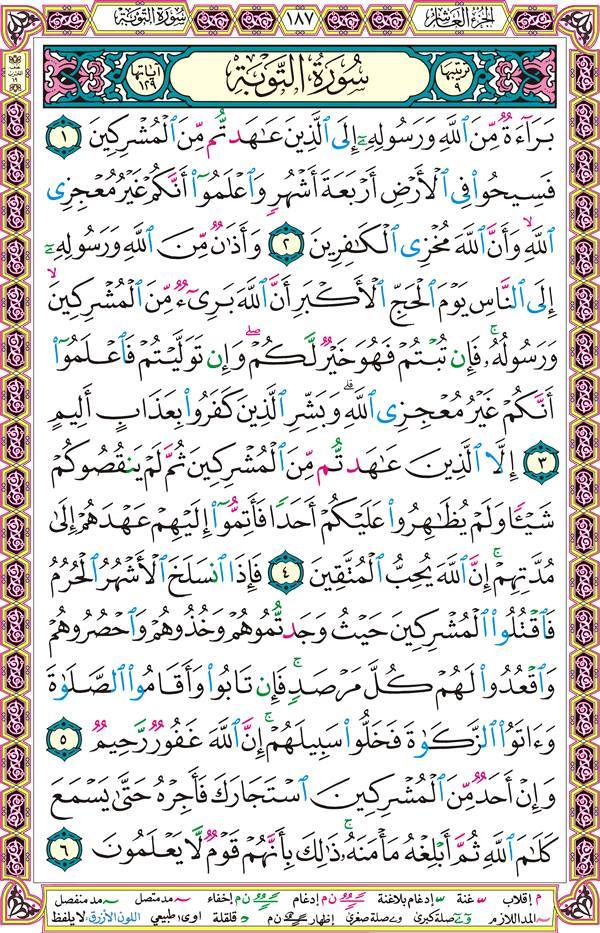 الجزء العاشر
١٨٧
سورة التوبة
ترتيبها ٩
سُورَةُ التَّوْبَةِ
آياتها ١٢٩
بَرَآءَةٌ مِّنَ ٱللَّهِ وَرَسُولِهِۦٓ إِلَى ٱلَّذِينَ عَٰهَدتُّم مِّنَ ٱلْمُشْرِكِينَ ١
فَسِيحُوا۟ فِى ٱلْأَرْضِ أَرْبَعَةَ أَشْهُرٍ وَٱعْلَمُوٓا۟ أَنَّكُمْ غَيْرُ مُعْجِزِى
ٱللَّهِ ۙ وَأَنَّ ٱللَّهَ مُخْزِى ٱلْكَٰفِرِينَ ٢ وَأَذَٰنٌ مِّنَ ٱللَّهِ وَرَسُولِهِۦٓ
إِلَى ٱلنَّاسِ يَوْمَ ٱلْحَجِّ ٱلْأَكْبَرِ أَنَّ ٱللَّهَ بَرِىٓءٌ مِّنَ ٱلْمُشْرِكِينَ ۙ
وَرَسُولُهُۥ ۚ فَإِن تُبْتُمْ فَهُوَ خَيْرٌ لَّكُمْ ۖ وَإِن تَوَلَّيْتُمْ فَٱعْلَمُوٓا۟
أَنَّكُمْ غَيْرُ مُعْجِزِى ٱللَّهِ ۗ وَبَشِّرِ ٱلَّذِينَ كَفَرُوا۟ بِعَذَابٍ أَلِيمٍ
٣ إِلَّا ٱلَّذِينَ عَٰهَدتُّم مِّنَ ٱلْمُشْرِكِينَ ثُمَّ لَمْ يَنقُصُوكُمْ
شَيْـًٔا وَلَمْ يُظَٰهِرُوا۟ عَلَيْكُمْ أَحَدًا فَأَتِمُّوٓا۟ إِلَيْهِمْ عَهْدَهُمْ إِلَىٰ
مُدَّتِهِمْ ۚ إِنَّ ٱللَّهَ يُحِبُّ ٱلْمُتَّقِينَ ٤ فَإِذَا ٱنسَلَخَ ٱلْأَشْهُرُ ٱلْحُرُمُ
فَٱقْتُلُوا۟ ٱلْمُشْرِكِينَ حَيْثُ وَجَدتُّمُوهُمْ وَخُذُوهُمْ وَٱحْصُرُوهُمْ
وَٱقْعُدُوا۟ لَهُمْ كُلَّ مَرْصَدٍ ۚ فَإِن تَابُوا۟ وَأَقَامُوا۟ ٱلصَّلَوٰةَ
وَءَاتَوُا۟ ٱلزَّكَوٰةَ فَخَلُّوا۟ سَبِيلَهُمْ ۚ إِنَّ ٱللَّهَ غَفُورٌ رَّحِيمٌ ٥
وَإِنْ أَحَدٌ مِّنَ ٱلْمُشْرِكِينَ ٱسْتَجَارَكَ فَأَجِرْهُ حَتَّىٰ يَسْمَعَ
كَلَٰمَ ٱللَّهِ ثُمَّ أَبْلِغْهُ مَأْمَنَهُۥ ۚ ذَٰلِكَ بِأَنَّهُمْ قَوْمٌ لَّا يَعْلَمُونَ ٦
م إقلاب س غنة س إدغام بلاغنة ن م إدغام ن م إخفاء مد متصل مد منفصل
المد اللازم صلة كبرى صلة صغرى إظهار ن م قلقلة اوى طبيعي اللون الأزرق لا يلفظ